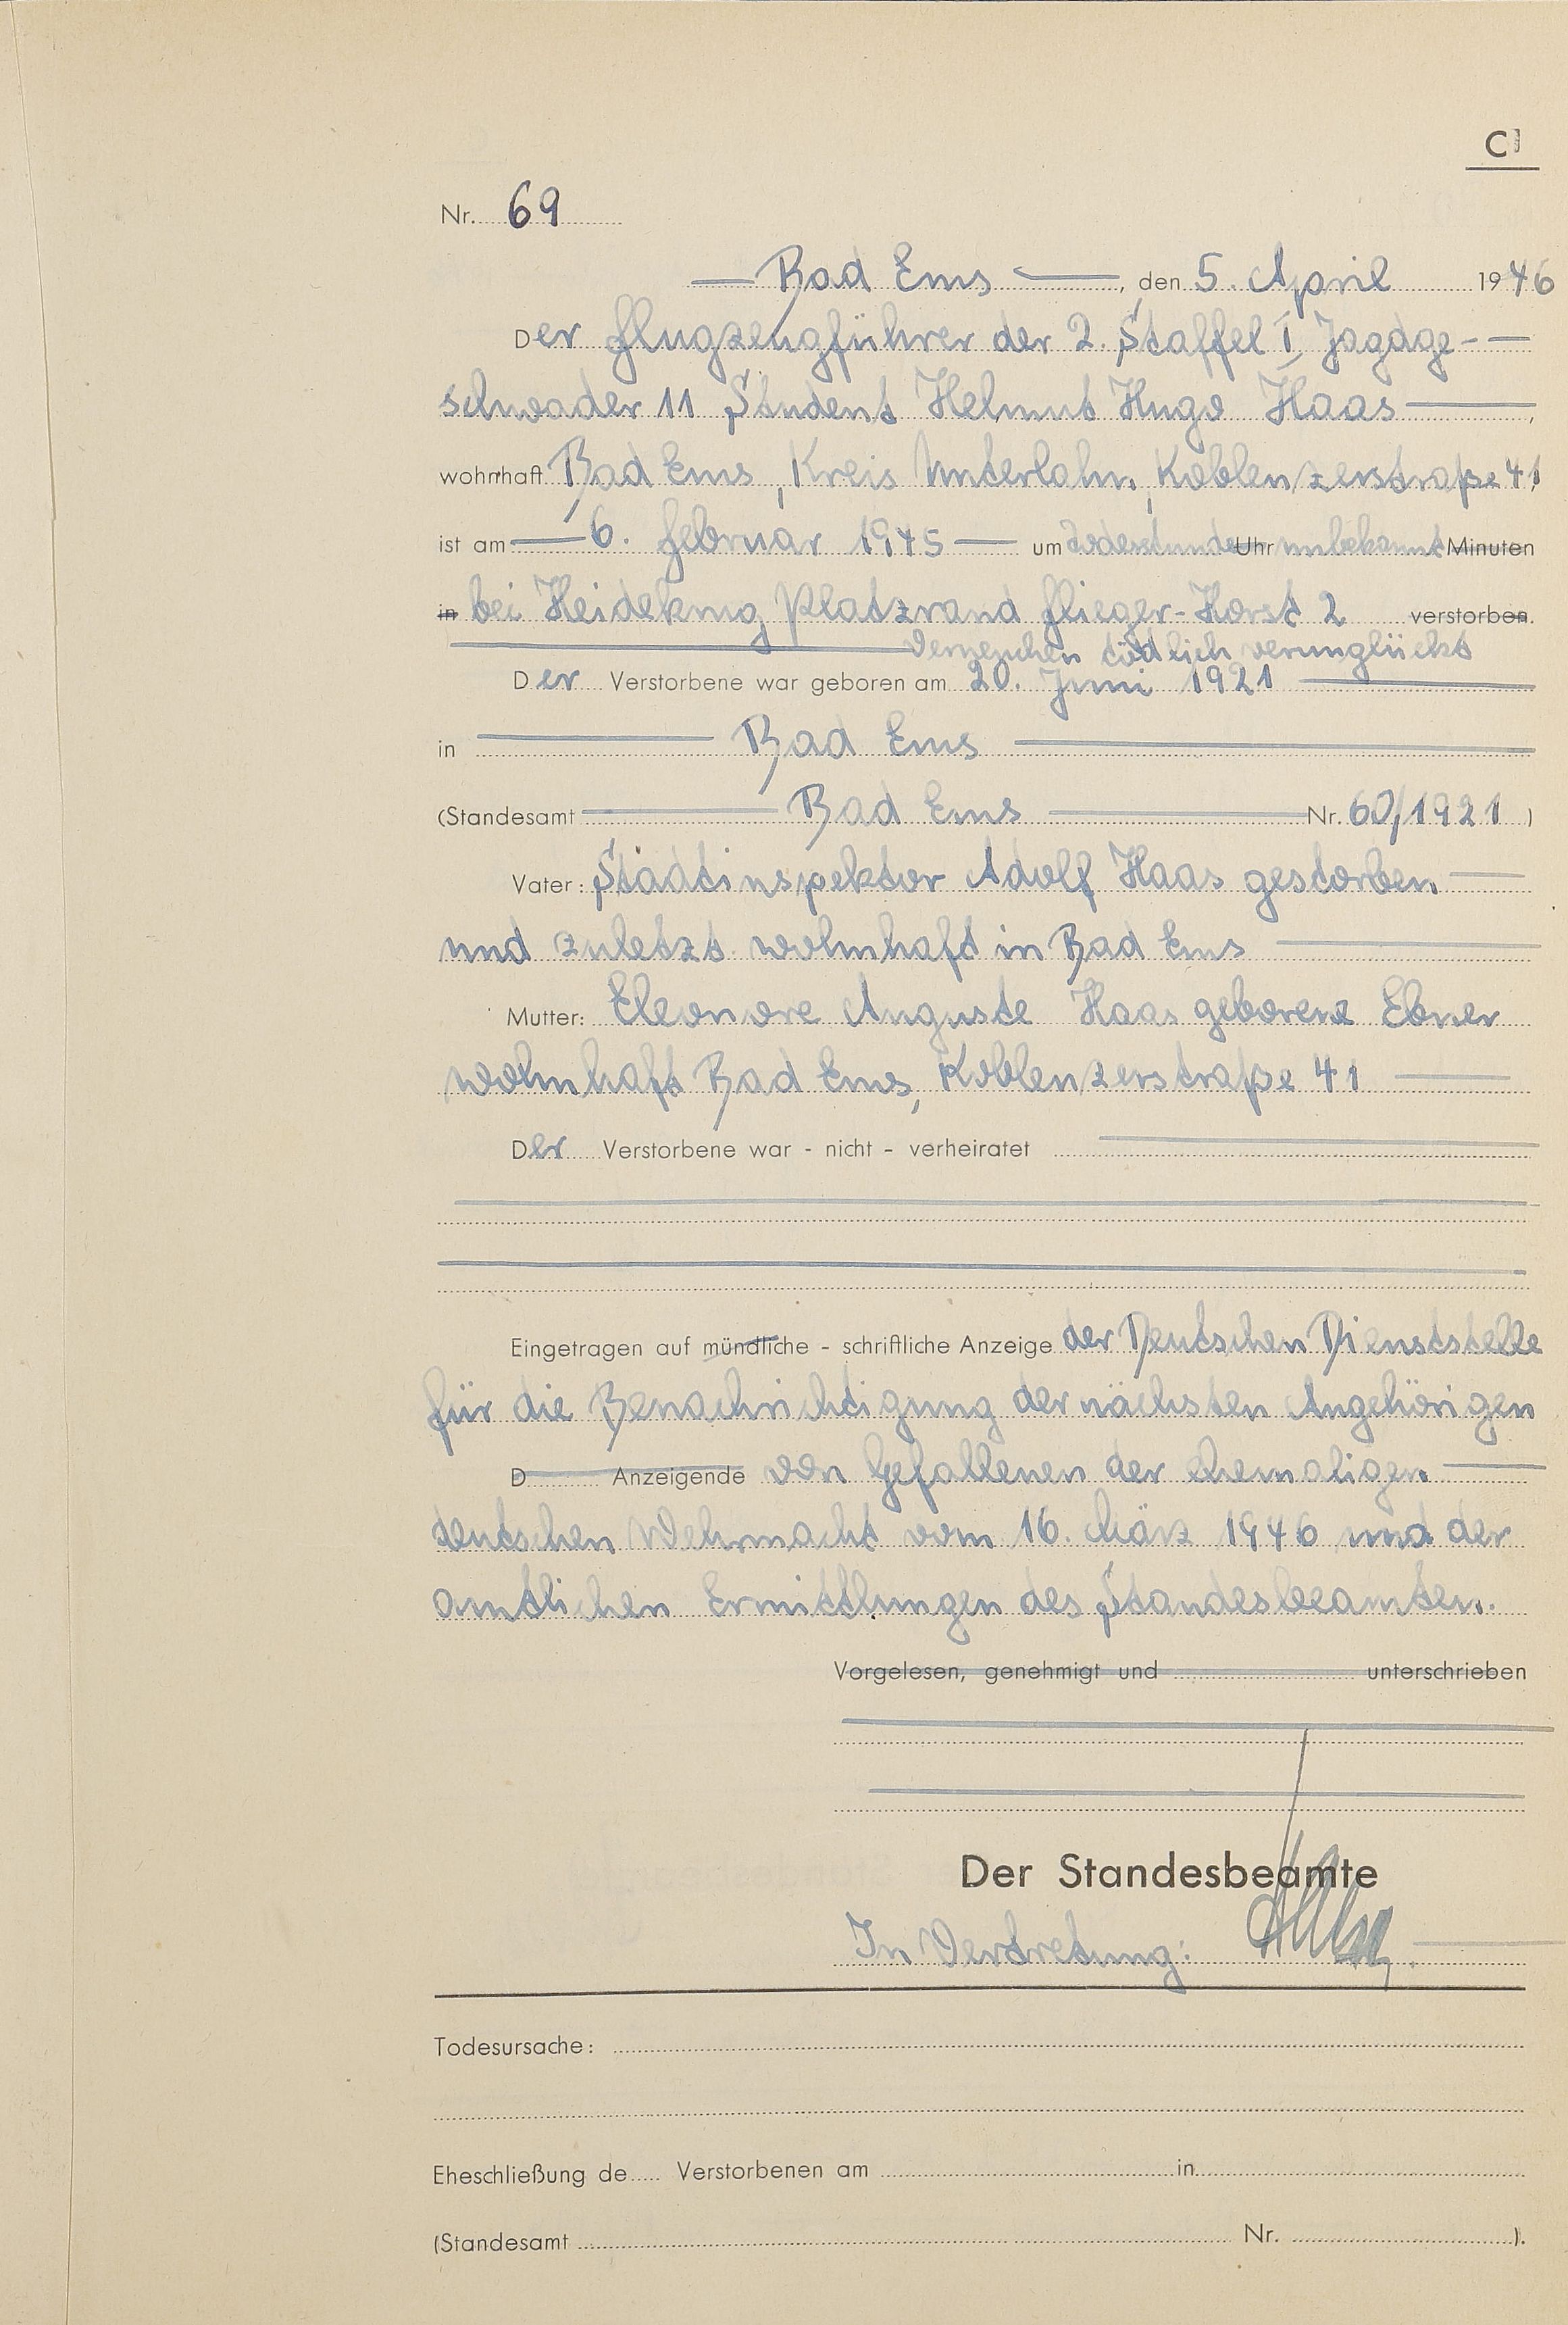 C
Nr. 69
Bad Ems, den 5. April 1946
Der Flugzeugführer der 2. Staffel I, Jagdge-
schwader 11 Student Helmut Hugo Haas,
wohnhaft Bad Ems, Kreis Unterlahn, Koblenzerstraße 41
ist am 6. Februar 1945 um Todesstunde Uhr unbekannt Minuten
in bei Heidekrug Platzrand Flieger-Horst 2 verstorben.
Werneuchen tödlich verunglückt
Der Verstorbene war geboren am 20. Juni 1921
in Bad Ems
(Standesamt Bad Ems Nr. 60/1921)
Vater: Stadtinspektor Adolf Haas gestorben
und zuletzt wohnhaft in Bad Ems
Mutter: Eleonore Auguste Haas geborene Ebner
wohnhaft Bad Ems, Koblenzerstraße 41
Der Verstorbene war - nicht - verheiratet
Eingetragen auf mündliche - schriftliche Anzeige der Deutschen Dienststelle
für die Benachrichtigung der nächsten Angehörigen
D Anzeigende von Gefallenen der ehemaligen
deutschen Wehrmacht vom 16. März 1946 und der
amtlichen Ermittlungen des Standesbeamten.
Vorgelesen, genehmigt und unterschrieben
Der Standesbeamte
In Vertretung:
Todesursache:
Eheschließung de Verstorbenen am in
(Standesamt Nr. ).